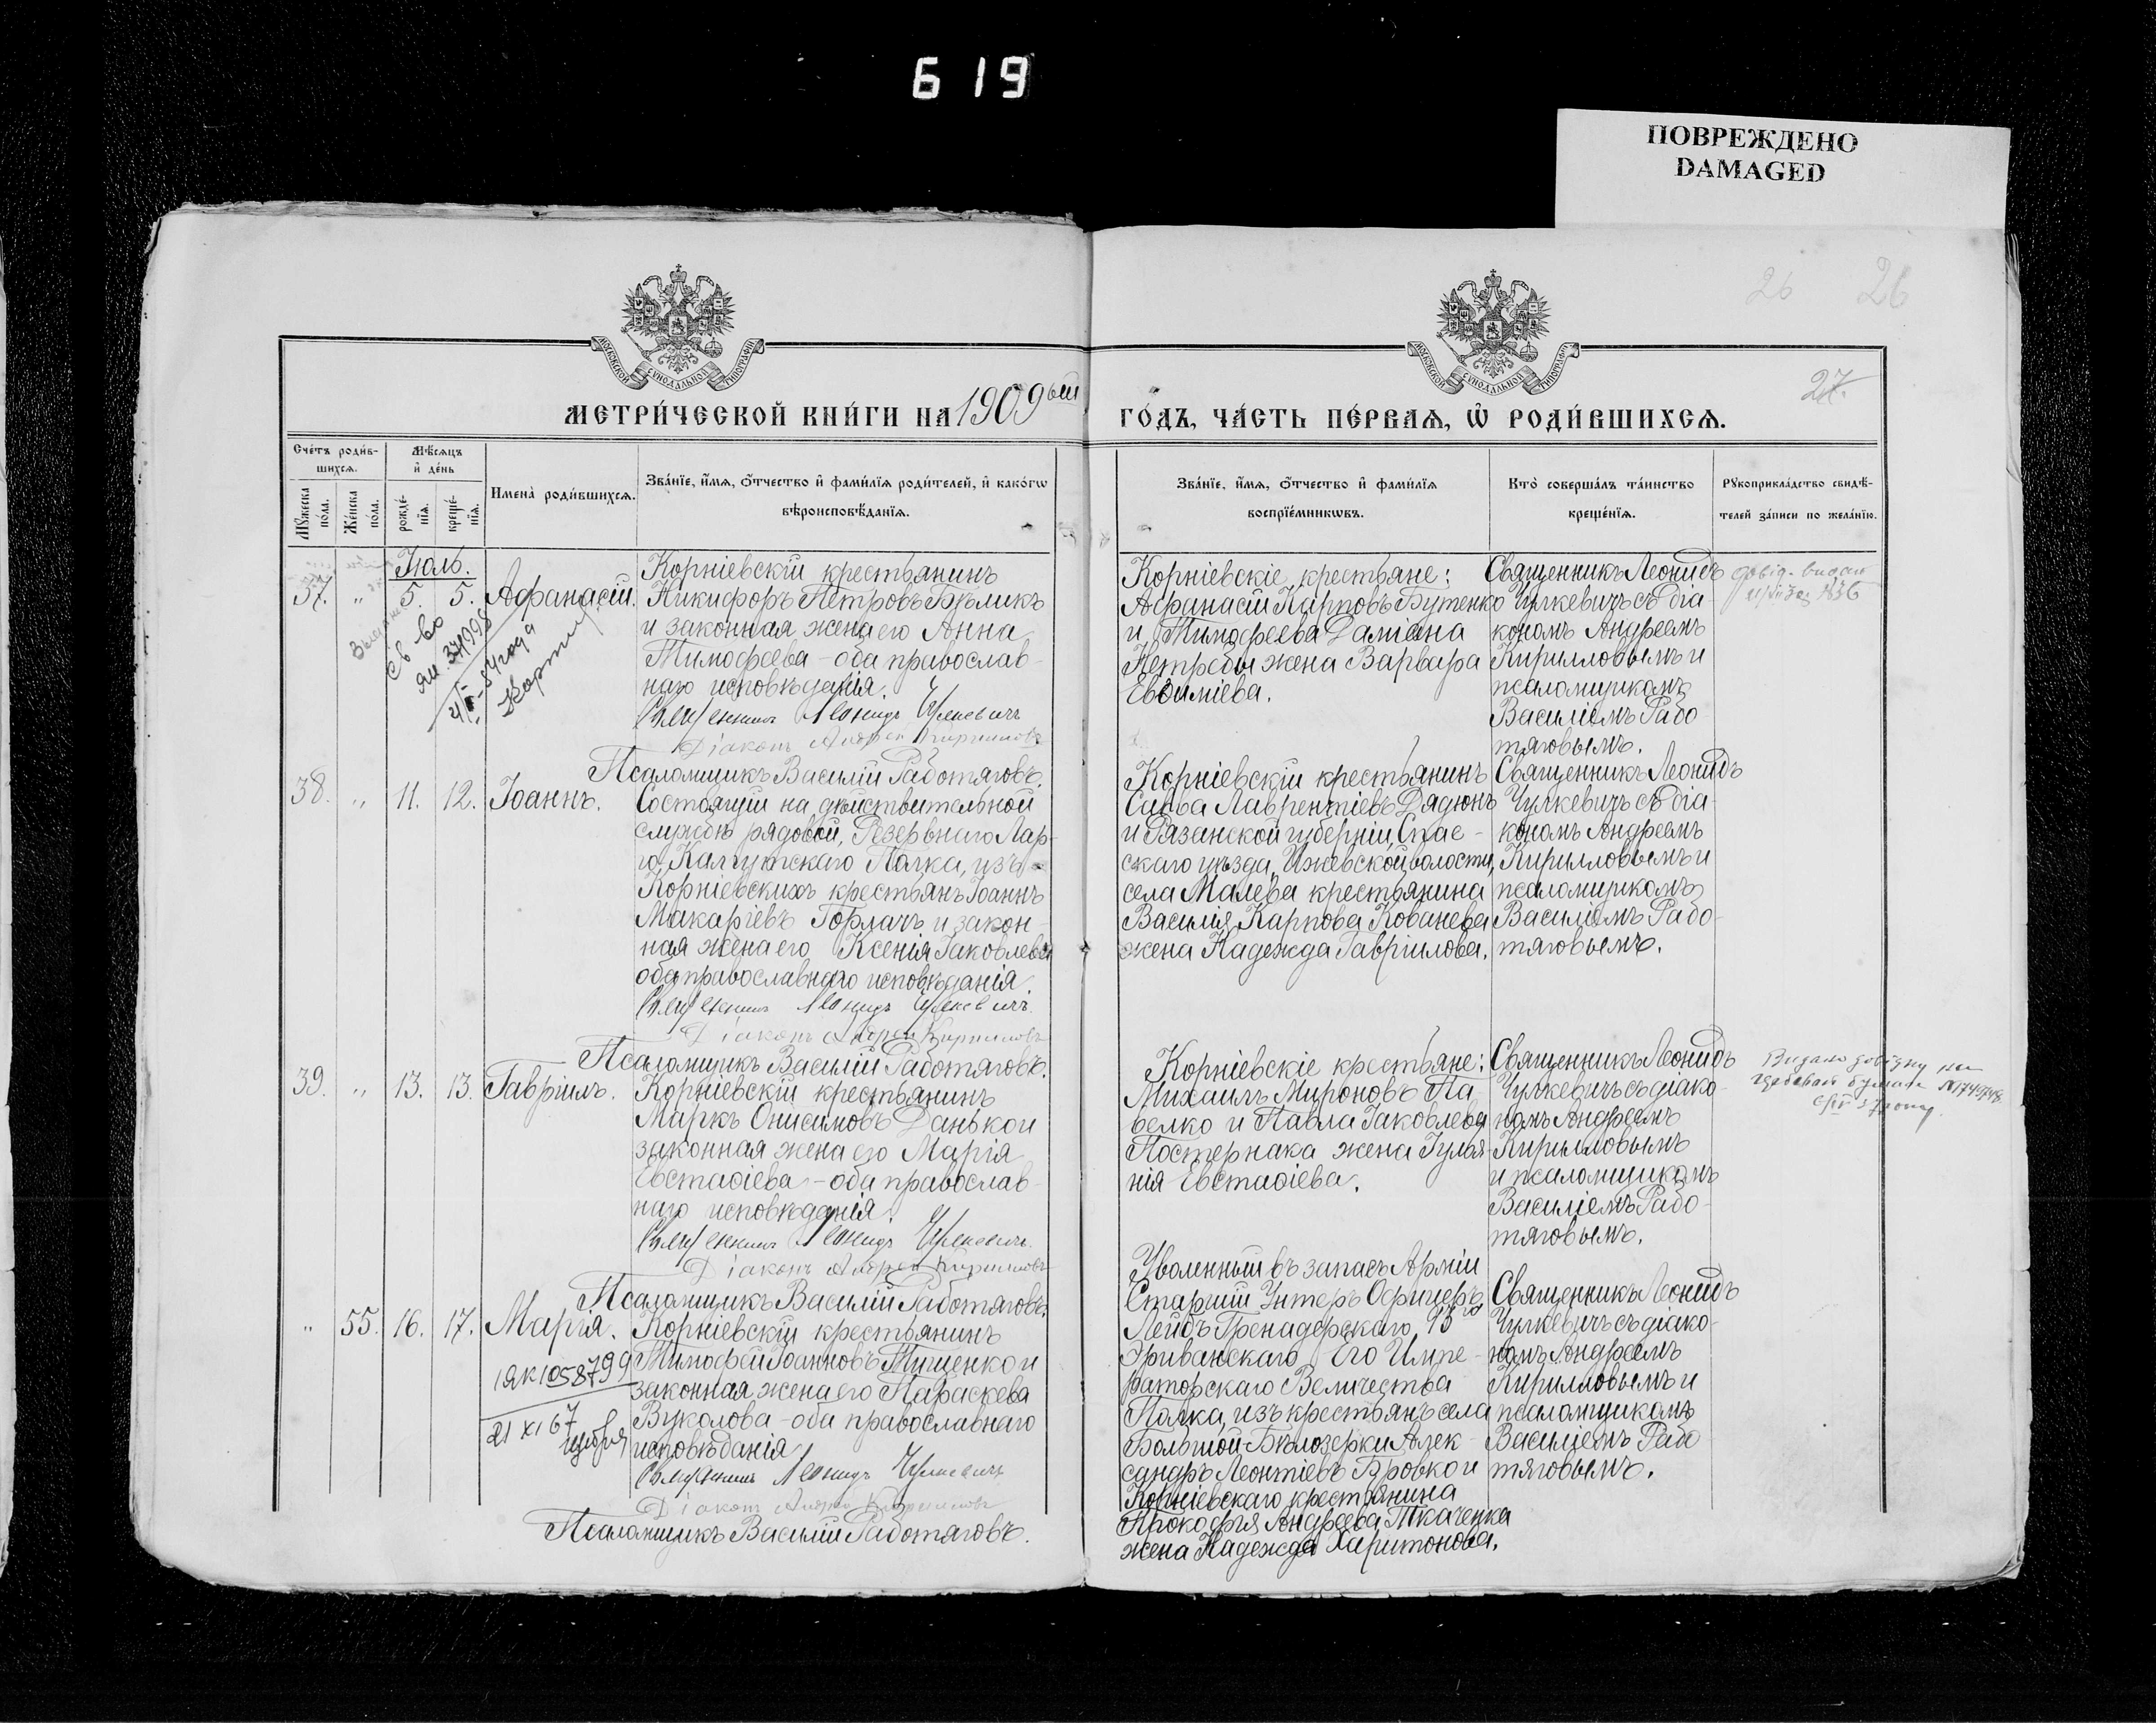 619
ПОВРЕЖДЕНО
DAMAGED
26 26
27.
МОСКОВСКОЙ СѴНОДАЛЬНОЙ ТИПОГРАФІИ
МОСКОВСКОЙ СѴНОДАЛЬНОЙ ТИПОГРАФІИ
МЕТРИ́ЧЕСКОЙ КНИ́ГИ НА 1909ый
ГО́ДЪ, ЧА́СТЬ ПЕ́РВАѦ, Ѡ҆ РОДИ́ВШИХСѦ.
Сче́тъ роди́в-
шихсѧ.
Мꙋ́жеска
по́ла.
Же́нска
по́ла.
Мѣ́сѧцъ
и҆ де́нь
рожде́-
нїѧ.
креще́-
нїѧ.
Имена̀ роди́вшихсѧ.
Зва́нїе, и҆́мѧ, ѻ҆́тчество и҆ фами́лїѧ роди́телей, и҆ како́гѡ
вѣроисповѣ́данїѧ.
Зва́нїе, и҆́мѧ, ѻ҆́тчество и҆ фами́лїѧ
воспрїе́мникѡвъ.
Кто̀ соверша́лъ та́инство
креще́нїѧ.
Рꙋкоприкла́дство свидѣ́-
телей за́писи по жела́нїю.
Іюль.
37. „ 5. 5. Аѳанасій.
св-во
Корніевскій крестьянинъ
Никифоръ Петровъ Бѣликъ
и законная жена его Анна
Тимофеева – оба православ-
наго исповѣданія.
Священникъ Леонидъ Чулкевичъ
Діаконъ Андрей Кирилловъ
Псаломщикъ Василій Работяговъ.
Корніевскіе крестьяне:
Аѳанасій Карповъ Бутенко
и Тимофеева Даміана
Нетребы жена Варвара
Евѳиміева.
Священникъ Леонидъ
Чулкевичъ съ діа-
кономъ Андреемъ
Кирилловымъ и
псаломщикомъ
Василіемъ Рабо-
тяговымъ.
38. „ 11. 12. Іоаннъ.
Состоящій на дѣйствительной
службѣ рядовой, Резервнаго Лар-
го-Кагульскаго Полка, изъ
Корніевскихъ крестьянъ Іоаннъ
Макаріевъ Горлачъ и закон-
ная жена его Ксенія Іаковлева
оба православнаго исповѣданія.
Священникъ Леонидъ Чулкевичъ.
Діаконъ Андрей Кирилловъ
Псаломщикъ Василій Работяговъ.
Корніевскій крестьянинъ
Савва Лаврентіевъ Дядюнъ
и Рязанской губерніи, Спас-
скаго уѣзда, Ижевской волости,
села Малѣева крестьянина
Василія Карпова Кованева
жена Надежда Гавріилова.
Священникъ Леонидъ
Чулкевичъ съ діа-
кономъ Андреемъ
Кирилловымъ и
псаломщикомъ
Василіемъ Рабо-
тяговымъ.
39. „ 13. 13. Гавріилъ.
Корніевскій крестьянинъ
Маркъ Онисимовъ Данько и
законная жена его Марія
Евстаѳіева – оба православ-
наго исповѣданія.
Священникъ Леонидъ Чулкевичъ.
Діаконъ Андрей Кирилловъ
Псаломщикъ Василій Работяговъ.
Корніевскіе крестьяне:
Михаилъ Мироновъ Па-
велко и Павла Іаковлева
Постернака жена Іуліа-
нія Евстаѳіева.
Священникъ Леонидъ
Чулкевичъ съ діако-
номъ Андреемъ
Кирилловымъ
и псаломщикомъ
Василіемъ Рабо-
тяговымъ.
Видано довідку на
„ 55. 16. 17. Марія.
21 XI 67
Корніевскій крестьянинъ
Тимофей Іоанновъ Тищенко и
законная жена его Параскева
Вуколова – оба православнаго
исповѣданія
Священникъ Леонидъ Чулкевичъ
Діаконъ Андрей Кирилловъ
Псаломщикъ Василій Работяговъ.
Уволенный въ запасъ Арміи
Старшій Унтеръ Офицеръ
Лейбъ Гренадерскаго 13го
Эриванскаго Его Импе-
раторскаго Величества
Полка, изъ крестьянъ села
Большой-Бѣлозерки Алек-
сандръ Леонтіевъ Бровко и
Корніевскаго крестьянина
Прокофія Андреева Ткаченка
жена Надежда Харитонова.
Священникъ Леонидъ
Чулкевичъ съ діако-
номъ Андреемъ
Кирилловымъ и
псаломщикомъ
Василіемъ Рабо-
тяговымъ.